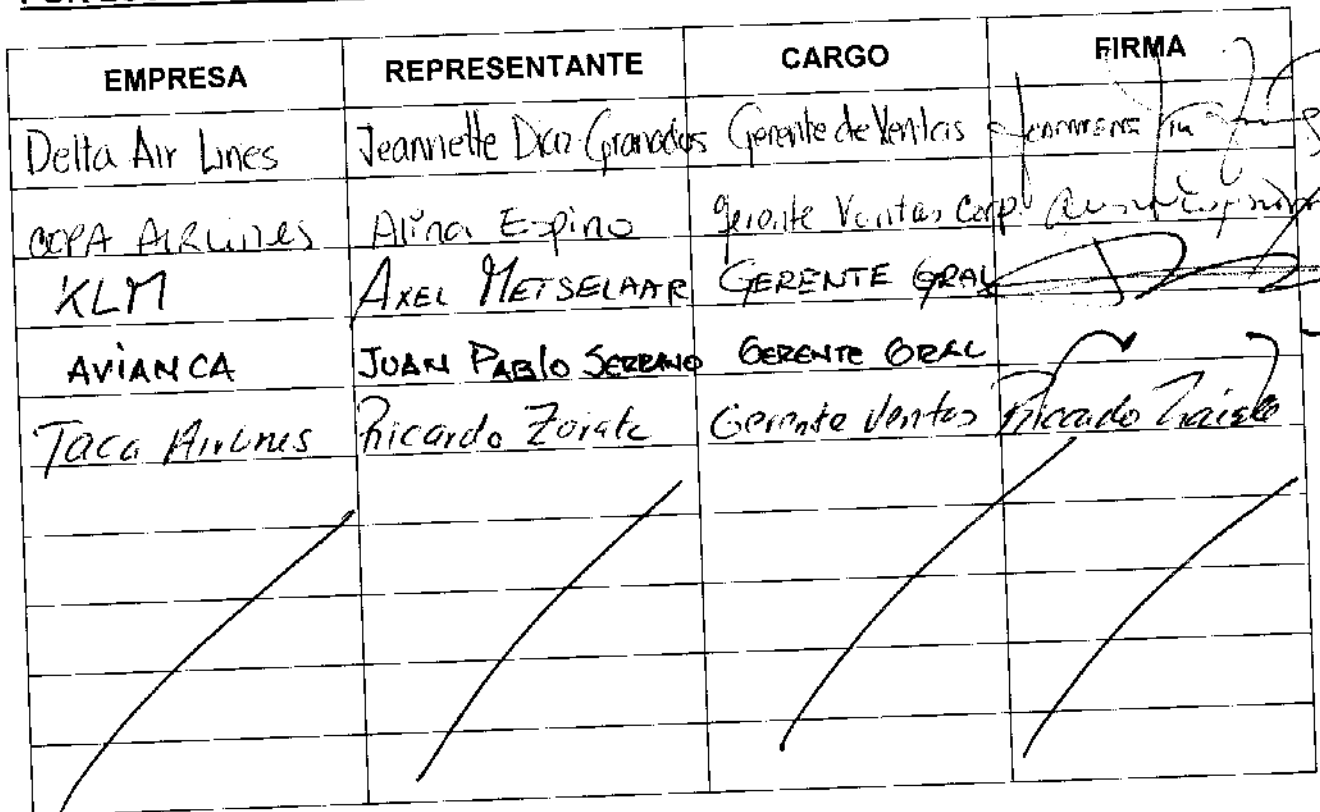 EMPRESA REPRESENTANTE CARGO FIRMA
Delta Air Lines Jeannette Diaz Granados Gerente de Ventas
COPA AIRLines Alina Espino Gerente Ventas Corp.
KLM AXEL METSELAAR GERENTE GRAL
AVIANCA JUAN PABlo SERRANO GERENTE GRAL
Taca Airlines Ricardo Zarate Gerente Ventas Ricardo Zarate